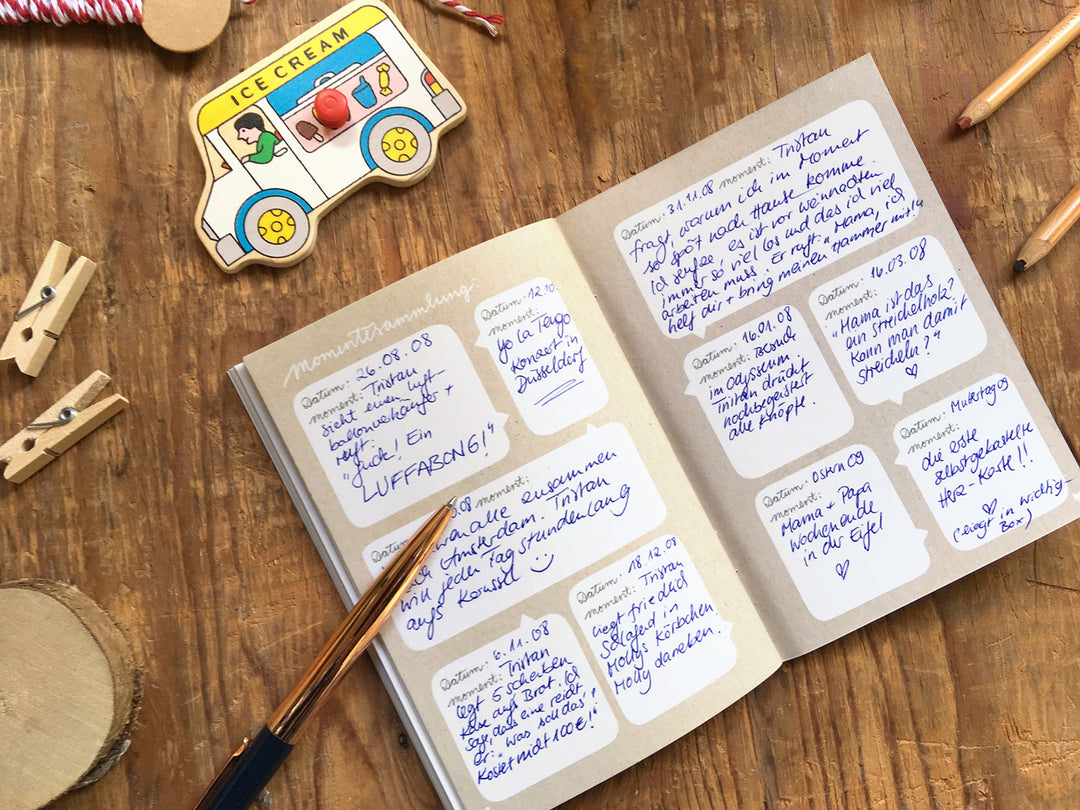 ICE CREAM
momentesammlung
Datum: 26.08.08
moment: Tristan
sieht einen Luft-
ballonverkäufer +
ruft:
"Guck! Ein
LUFFABONG!"
Datum: 12.10.
moment:
Yo La Tengo
Konzert in
Düsseldorf
Datum .08 moment:
waren alle zusammen
in Amsterdam. Tristan
will jeden Tag stundenlang
aufs Karussel
Datum: 6.11.08
moment: Tristan
legt 5 Scheiben
Käse aufs Brot. Ich
sage, dass eine reicht,
er: "was soll das?
Kostet nicht 100€!"
Datum: 18.12.08
moment: Tristan
liegt friedlich
schlafend in
Mollys Körbchen.
Molly daneben.
Datum: 31.11.08 moment: Tristan
fragt, warum ich im Moment
so spät nach Hause komme.
Ich seufze, es ist vor Weihnachten
immer so viel los und das ich viel
arbeiten muss. Er ruft: "Mama, ich
helf dir + bring meinen Hammer mit!"
Datum: 16.01.08
moment: Besuch
im Odysseum.
Tristan drückt
hochbegeistert
alle Knöpfe.
Datum: 16.03.08
moment:
"Mama ist das
ein Streichelholz?
Kann man damit
streicheln?"
♡
Datum: Ostern 09
moment:
Mama + Papa
Wochenende
in der Eifel
♡
Datum: Muttertag 09
moment:
die erste
selbstgebastelte
Herz-Karte!!
♡
(liegt in wichtig-
Box)